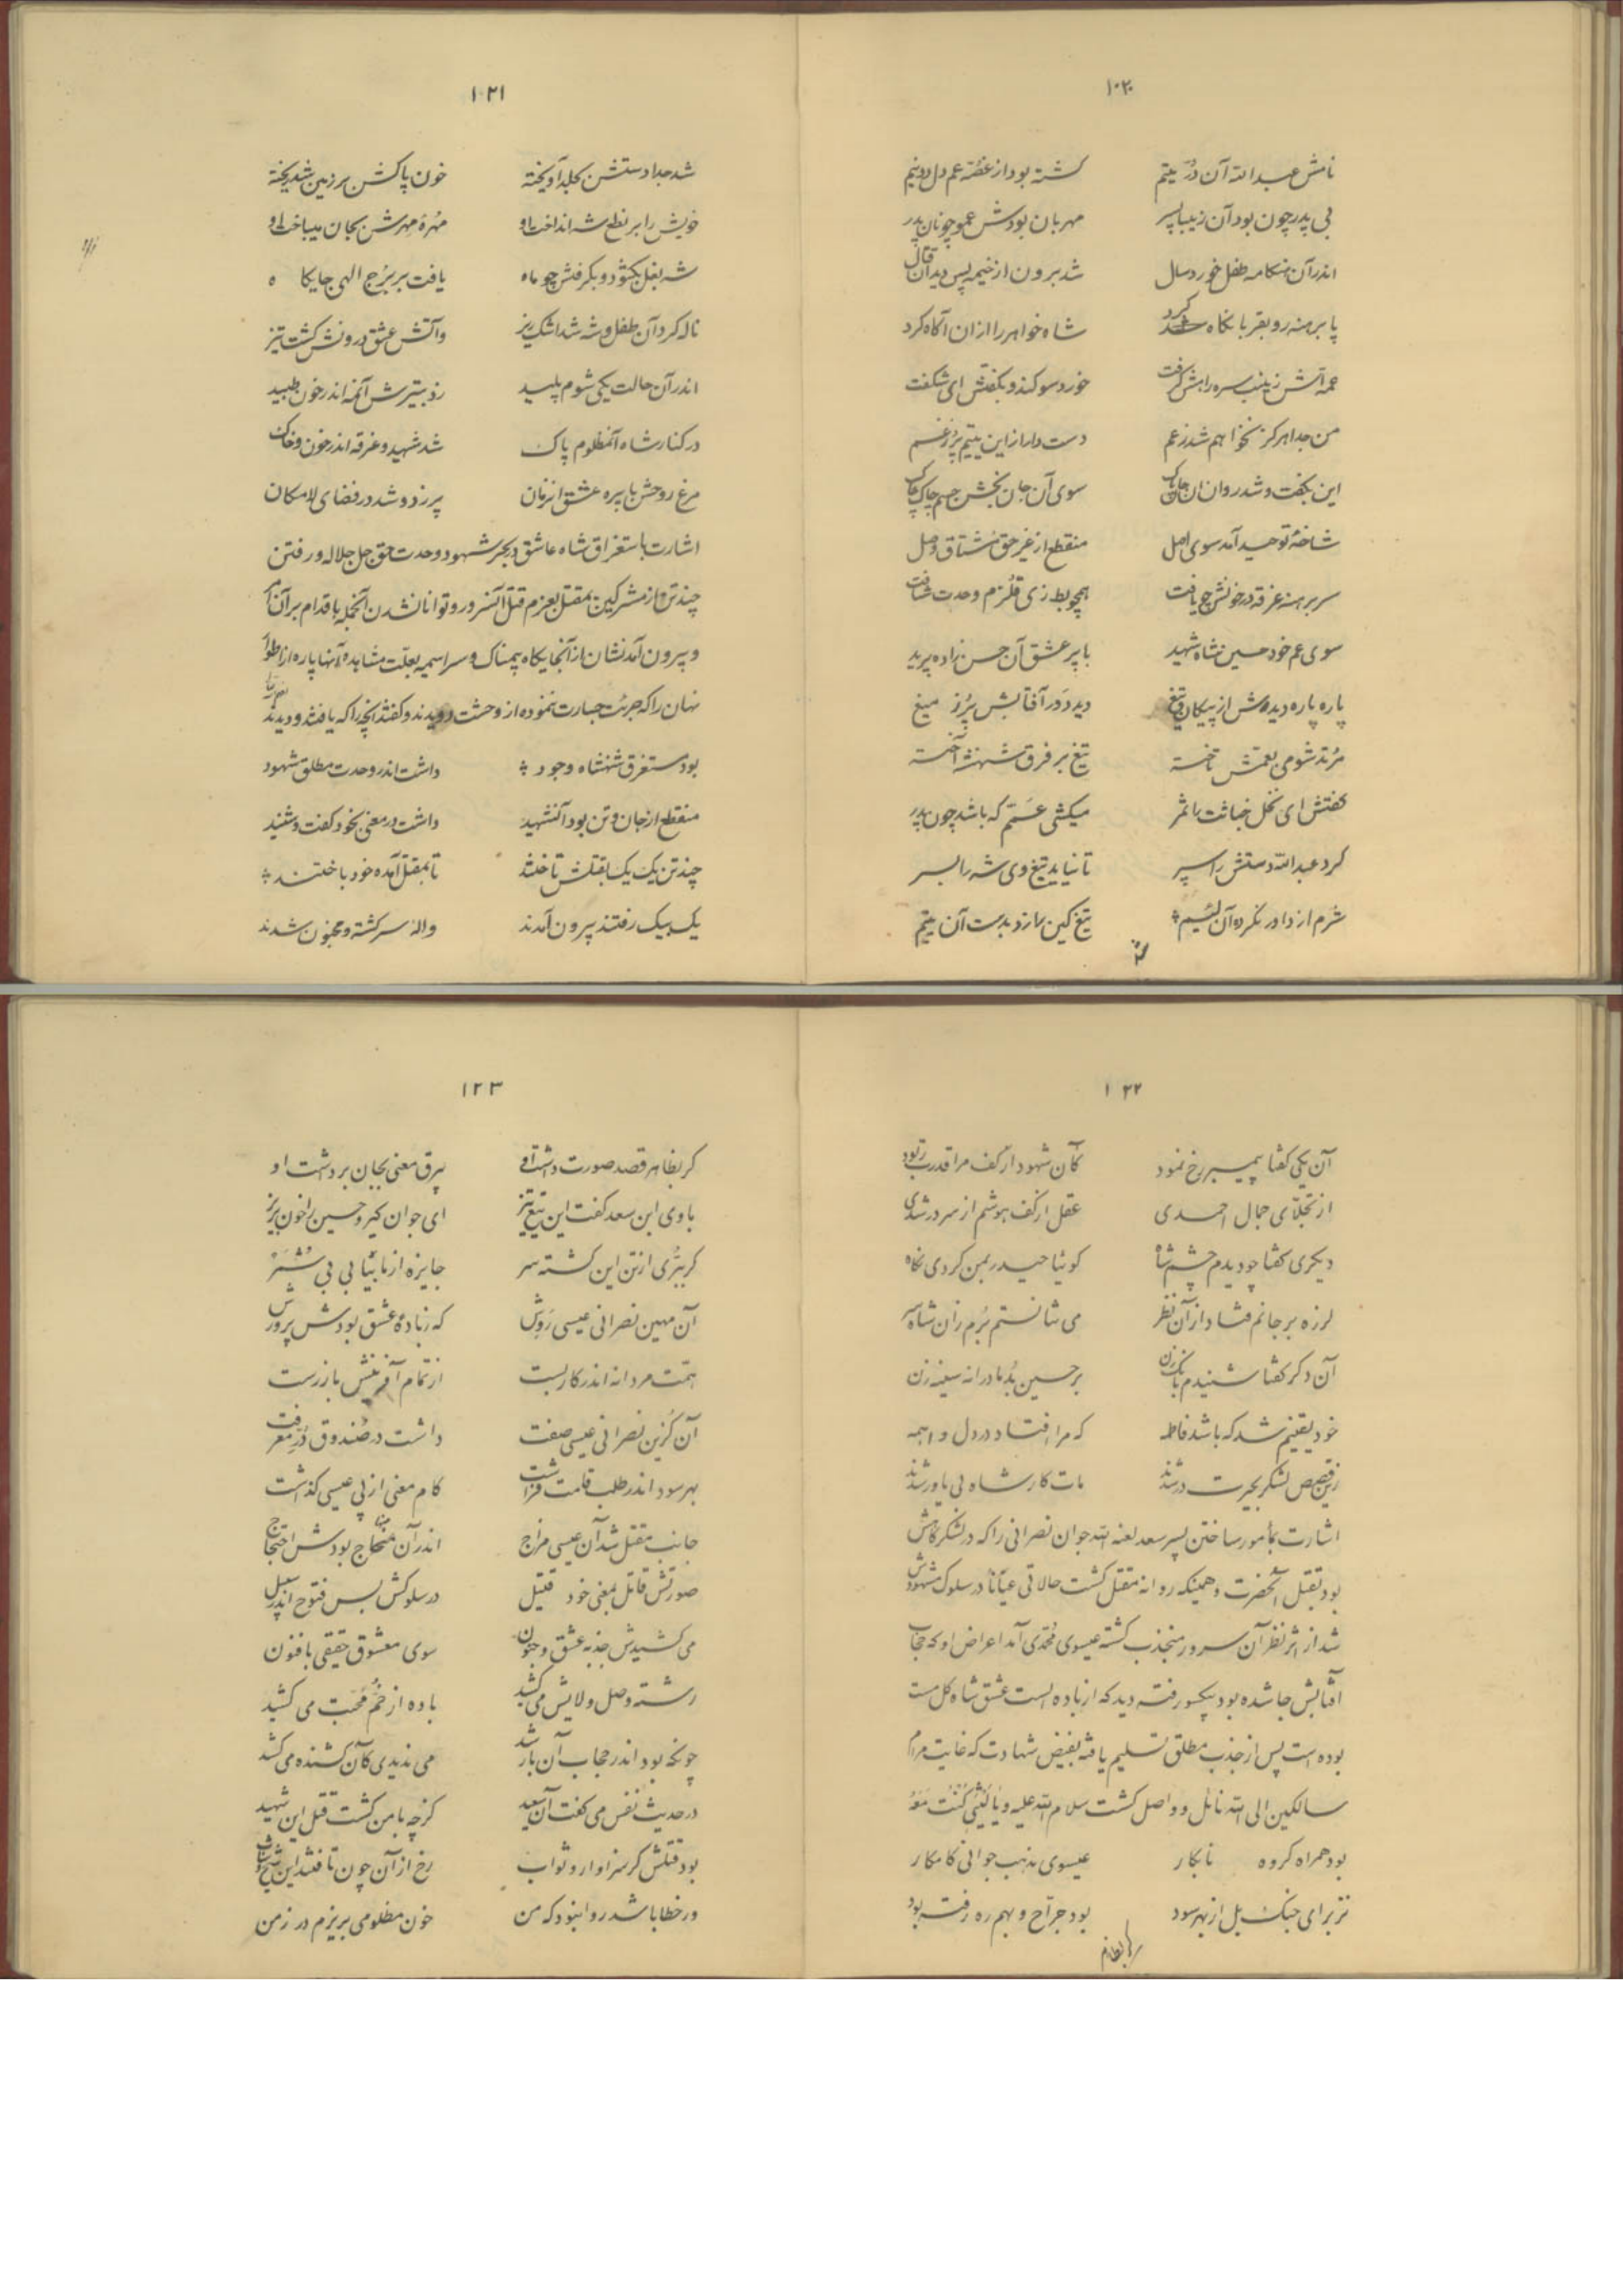 ۱۰۲۰
نامش عبدالله آن درّ یتیم گشته بود از غصّه عم دل دو نیم
بی پدر چون بود آن زیبا پسر مهربان بودش عمو چونان پدر
اندر آن هنگامه طفل خورد سال شد برون از خیمه پس دید آن قتال
پا برهنه رو بقربانگاه کرد شاه خواهر را از آن آگاه کرد
عمه آتش زینب سر راهش گرفت خورد سوگند و بگفتش ای شگفت
من جدا هرگز نخواهم شد ز عم دست دار از این یتیم پر ز غم
این بگفت و شد روان آن جان پاک سوی آن جان بخش جسم چاک چاک
شاخهٔ توحید آمد سوی اصل منقطع از غیر حق مشتاق وصل
سر برهنه غرقه در خونش چو یافت همچو بط زی قلزم وحدت شتافت
سوی عم خود حسین شاه شهید با پر عشق آن حسن زاده پرید
پاره پاره دیدش از پیکان و تیغ دید در آفتابش پر ز میغ
مرتد شومی بعمّش تاخته تیغ بر فرق شهنشه آخته
گفتش ای نخل خباثت را ثمر میکشی عمّم که باشد چون پدر
کرد عبدالله دستش را سپر تا نیاید تیغ وی شه را بسر
شرم از داور نکرد آن لئیم تیغ کین را زد بدست آن یتیم
۱۰۲۱
شد جدا دستش بجلد آویخته خون پاکش بر زمین شد ریخته
خویش را بر نطع شه انداخت او مهرهٔ مهرش بجان میباخت او
شه بغل بگشود و بگرفتش چو ماه یافت بر برج الهی جایگاه
ناله کرد آن طفل و شه شد اشک ریز و آتش عشق درونش گشت تیز
اندر آن حالت یکی شوم پلید زد بتیرش آنمه اندر خون طپید
در کنار شاه آنمظلوم پاک شد شهید و غرقه اندر خون و خاک
مرغ روحش با پر عشق آنزمان پر زد و شد در فضای لامکان
اشارت باستغراق شاه عاشق در بحر شهود وحدت حق جل جلاله و رفتن
چند تن از مشرکین بمقتل بعزم قتل آنسرور و توانا نشدن آنجمله باقدام بر آن امر
و بیرون آمدنشان از آنجایگاه بیمناک و سراسیمه بعلّت مشاهده آنها پاره از اطوار
نهان را که جرئت جسارت ننموده از وحشت دویدند و گفتند آنچه را که یافتند و دیدند
بود مستغرق شهنشاه وجود داشت اندر وحدت مطلق شهود
منقطع از جان و تن بود آنشهید داشت در معنی بخود گفت و شنید
چند تن یک یک بقتلش تاختند تا بمقتل آمده خود باختند
یک بیک رفتند بیرون آمدند واله و سرگشته و مجنون شدند
۱۲۲
آن یکی گفتا پیمبر رخ نمود کان شهود از کف مرا قدرت ربود
از تجلّای جمال احمدی عقل از کف هوشم از سر در شدی
دیگری گفتا چو دیدم چشم شاه گوئیا حیدر بمن کردی نگاه
لرزه بر جانم فتاد از آن نظر می نتانستم برم زان شاه سر
آن دگر گفتا شنیدم بانگ زن بر حسین بد مادرانه سینه زن
خود یقینم شد که باشد فاطمه که مرا افتاد در دل واهمه
زین قصص لشکر بحیرت در شدند مات کار شاه بی یاور شدند
اشارت بمأمور ساختن پسر سعد لعنه الله جوان نصرانی را که در لشکرگاهش
بود بقتل آنحضرت و همینکه روانه مقتل گشت حالاتی عیانا در سلوک مشهودش
شد از اثر نظر آن سرور منجذب گشته عیسوی محمّدی آمد اعراض او که حجاب
آفتابش جا شده بود بیکسو رفته دید که از باده الست عشق شاه گل مست
بوده است پس از جذب مطلق تسلیم یافته بفیض شهادت که غایت مرام
سالکین الی الله نائل و واصل گشت سلام الله علیه و یا لیتنی کنت معه
بود همراه گروه نابکار عیسوی مذهب جوانی کامکار
نز برای جنگ بل از بهر سود بود جرّاح و بهمره رفته بود
۱۲۳
گر بظاهر قصد صورت داشت او برق معنی بجان برداشت او
با وی ابن سعد گفت این تیغ تیز ای جوان گیر و حسین را خون بریز
گر ببرّی از تن این کشته سر جایزه از ما بیابی بی شمر
آن مهین نصرانی عیسی روش که ز بادهٔ عشق بودش پرورش
همّت مردانه اندر کار بست از تمام آفرینش باز رست
آن گزین نصرانی عیسی صفت داشت در صندوق درّ معرفت
بهر سود اندر طلب قامت فراشت کام معنی از پی عیسی گذاشت
جانب مقتل شد آن عیسی مزاج اندر آن منهاج بودش احتیاج
صورتش قاتل بمعنی خود قتیل در سلوکش بس فتوح اندر سبیل
می کشیدش جذبه عشق و جنون سوی معشوق حقیقی با فنون
رشته وصل و ولایش می کشید باده از خمّ محبّت می کشید
چونکه بود اندر حجاب آن باز شد می ندیدی کان کشنده می کشد
در حدیث نفس می گفت آن سعید گرچه با من گشت قتل این شهید
بود قتلش گر سزاوار و ثواب رخ از آن چون تافتند این شیخ و شاب
ور خطا باشد روا نبود که من خون مظلومی بریزم در زمن